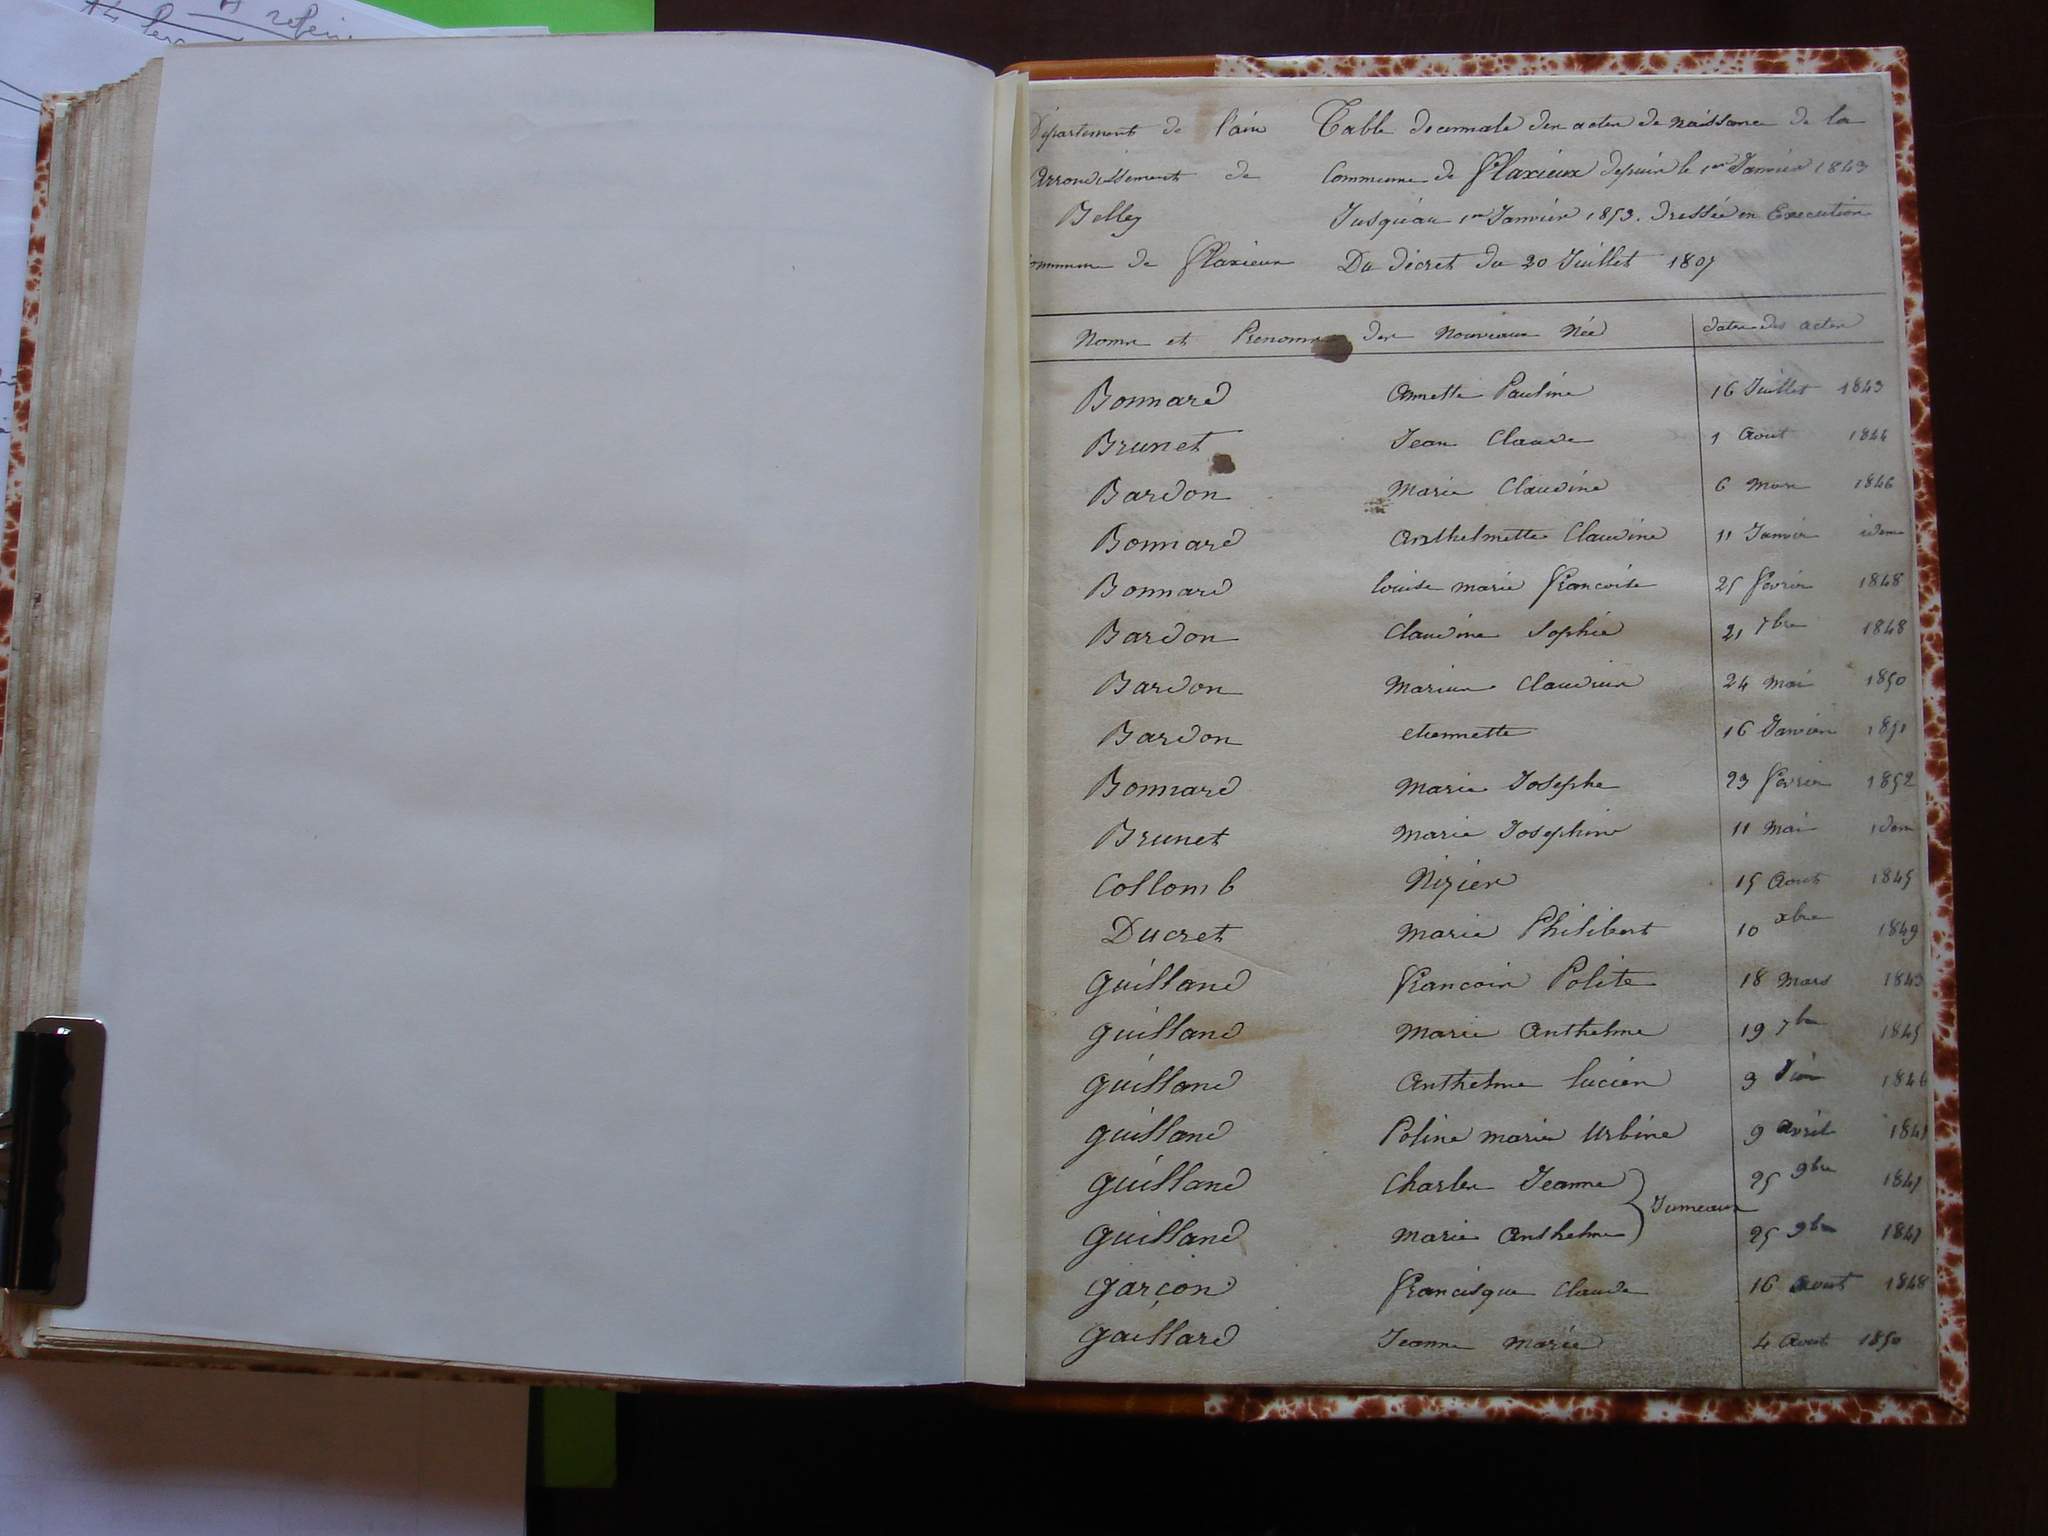 Département de l'ain Table decennale des actes de naissance de la
Arrondissement de Commune de flaxieux depuis le 1er Janvier 1843
Belley Jusqu'au 1er Janvier 1853. Dressée en Execution
Commune de flaxieux Du décret du 20 Juillet 1807
Noms et Prenoms des Nouveaux Née dates des actes
Bonnard annette Pauline 16 Juillet 1843
Brunet Jean Claude 1 aout 1844
Bardon Marie Claudine 6 Mars 1846
Bonnard Anthelmette Claudine 11 Janvier idem
Bonnard louise marie francoise 25 fevrier 1848
Bardon Claudine Sophie 21 7bre 1848
Bardon Marius Claudius 24 mai 1850
Bardon etiennette 16 Janvier 1851
Bonnard Marie Josephe 23 fevrier 1852
Brunet Marie Josephine 11 Mai idem
Collomb Nizier 15 Aout 1845
Ducret Marie Philibert 10 xbre 1849
guilland francois Polite 18 Mars 1843
guilland Marie Anthelme 19 7bre 1845
guilland Anthelme lucien 3 1846
guilland Poline marie Urbine 9 avril
guilland Charles Jeanne 25 9bre 1847
Jumeaux
guilland Marie Anthelme 25 9bre 1847
garçon francisque Claude 16 aout 1848
gaillard Jeanne Marie 4 Aout 1850